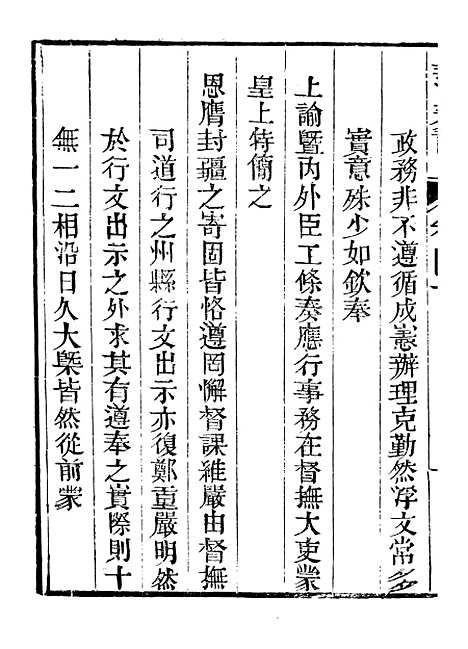 政務非不遵循成憲辦理克勤然浮文常多
實意殊少如欽奉
上諭暨內外臣工條奏應行事務在督撫大吏蒙
皇上特簡之
恩膺封疆之寄固皆恪遵罔懈督課維嚴由督撫
司道行之州縣行文出示亦復鄭重嚴明然
於行文出示之外求其有遵奉之實際則十
無一二相沿日久大槩皆然從前蒙